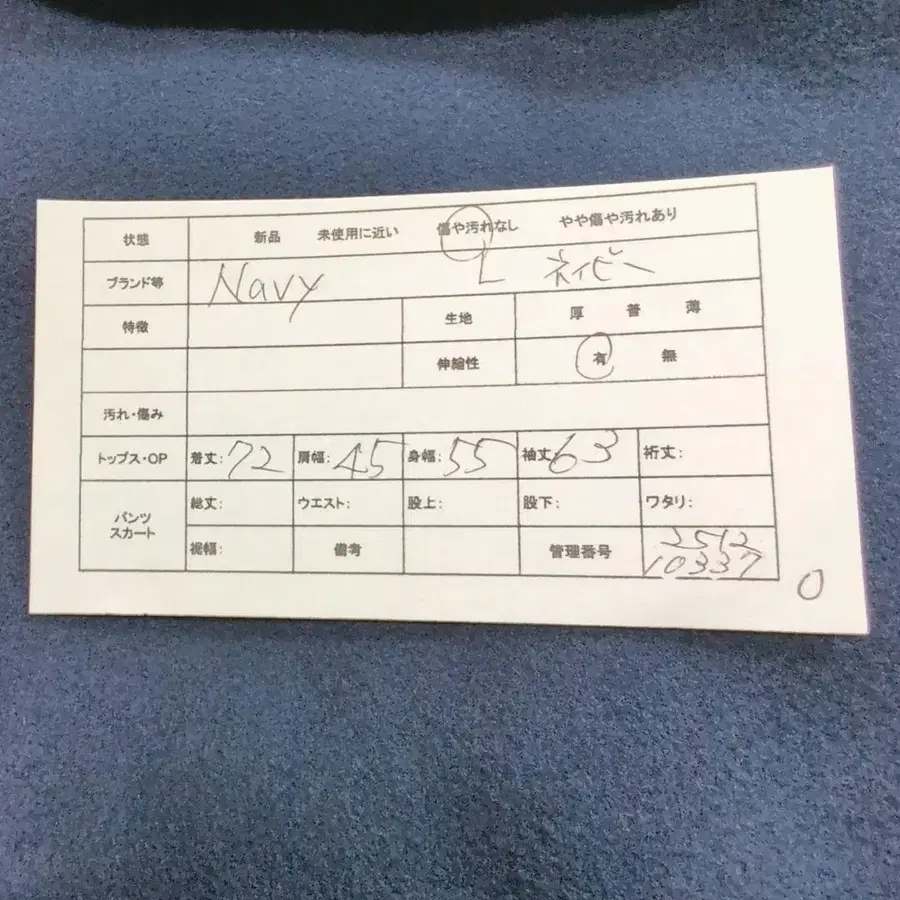 状態 新品 未使用に近い 傷や汚れなし やや傷や汚れあり
ブランド等 Navy L ネイビー
特徴 生地 厚 普 薄
伸縮性 有 無
汚れ・傷み
トップス・OP 着丈:72 肩幅:45 身幅:55 袖丈63 裄丈:
パンツ スカート 総丈: ウエスト: 股上: 股下: ワタリ:
裾幅: 備考 管理番号 2512
10337
0